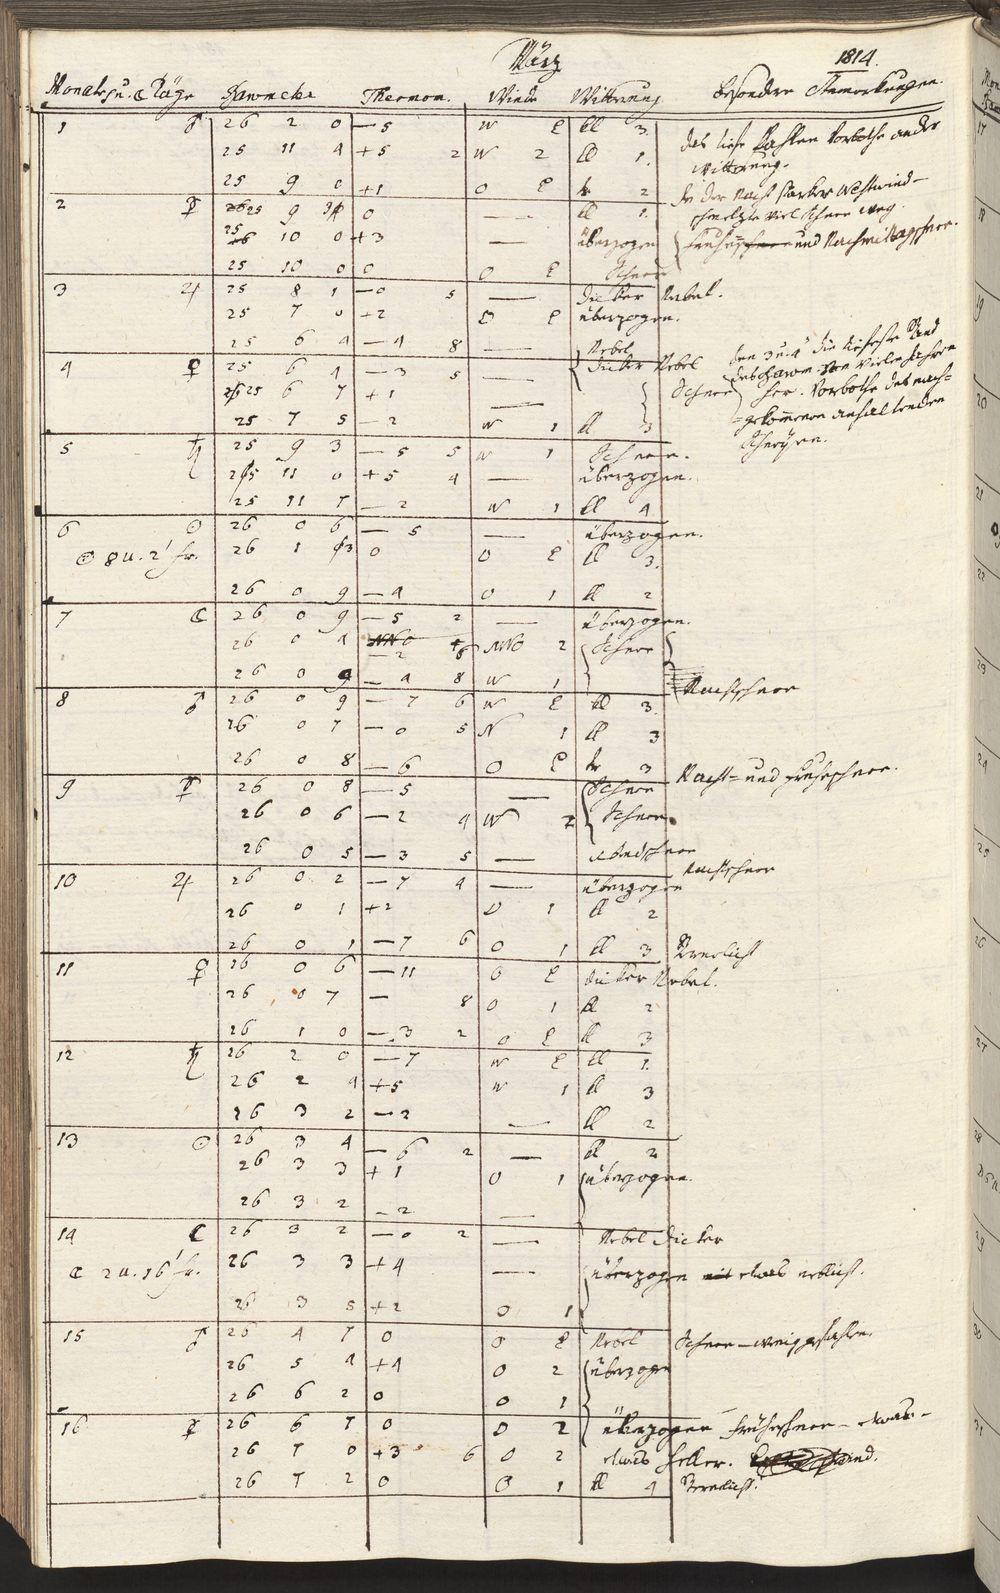 März 1814.
Monats u. ☾ Täge Barometer Thermom. Winde Witterung besondere Anmerkungen.
1 ♂ 26 2 0 — 5 W kl 3.
25 11 4 + 5 2 W 2 kl 1.
25 9 0 + 1 O tr 2
Witterung.
In der Nacht starker Westwind —
schmelzte viel Schnee weg.
2 ☿ 25 9 0 kl 1.
25 10 0 + 3 — überzogen und Nachmittagschnee.
25 10 0 0 O Schnee
3 ♃ 25 8 1 — 0 5 — dicker Nebel.
25 7 0 + 2 O überzogen.
25 6 4 — 4 8 — Nebel
4 ♀ 25 6 4 — 3 5 — dicker Nebel
25 6 7 + 1 — Schnee
25 7 5 — 2 W 1 kl 3
den 3 u. 4 die tiefeste Stand
des Barom. von vielen Jahren
her. Vorbothe des nach-
gekommenen anhaltenden
5 ♄ 25 9 3 — 5 5 W 1 Schnee.
25 11 0 + 5 4 — überzogen.
25 11 7 — 2 W 1 kl 4
6 ☉ 26 0 6 — 5 — überzogen.
☉ 8 u. 2' fr. 26 1 3 0 O kl 3.
26 0 9 — 4 O 1 kl 2
7 ☾ 26 0 9 — 5 2 — überzogen.
26 0 4 — 2 8 NNO 2 Schnee
26 0 9 — 4 8 W 1
Nachtschnee
8 ♂ 26 0 9 — 7 6 W kl 3.
26 0 7 — 0 5 N 1 kl 3
26 0 8 — 6 O tr 3
Nacht- und Frühschnee.
9 ☿ 26 0 8 — 5 — Schnee
26 0 6 — 2 4 W 2 Schnee
26 0 5 — 3 5 — Abendschnee
Nachtschnee
10 ♃ 26 0 2 — 7 4 — überzogen
26 0 1 + 2 O 1 kl 2
26 0 1 — 7 6 O 1 kl 3
11 ♀ 26 0 6 — 11 O dicker Nebel.
26 0 7 — 8 O 1 kl 2
26 1 0 — 3 2 O kl 3
12 ♄ 26 2 0 — 7 W kl 1.
26 2 4 + 5 W 1 kl 3
26 3 2 — 2 — kl 2
13 ☉ 26 3 4 — 6 2 — kl 2
26 3 3 + 1 O 1 überzogen.
26 3 2 — 2 —
14 ☾ 26 3 2 — 0 2 — Nebel dicker
☾ 2 u. 16' fr. 26 3 3 + 4 — überzogen etwas neblicht.
26 3 5 + 2 O 1
15 ♂ 26 4 7 0 O Nebel Schnee — wenig gefallen.
26 5 4 + 4 O 2 überzogen
26 6 2 0 O 1
16 ☿ 26 6 7 0 O 2 überzogen Frühschnee — etwas —
26 7 0 + 3 6 O 2 etwas heller.
26 7 2 0 O 1 kl 4
17
18
19
20
21
22
23
24
25
26
27
28
29
30
31